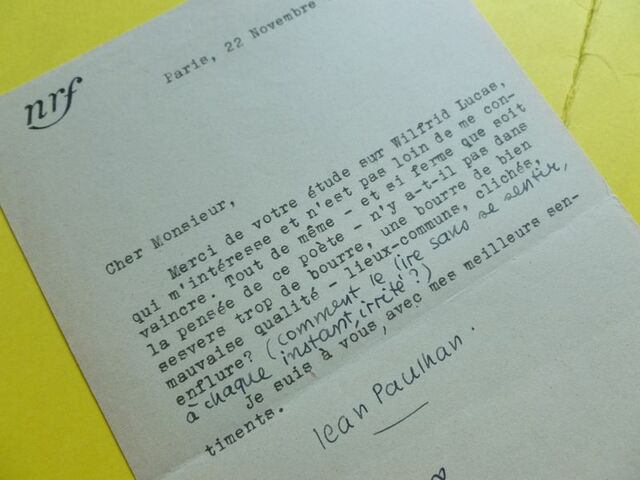 nrf
Paris, 22 Novembre
Cher Monsieur,
Merci de votre étude sur Wilfrid Lucas,
qui m'intéresse et n'est pas loin de me con-
vaincre. Tout de même - et si ferme que soit
la pensée de ce poète - n'y a-t-il pas dans
sesvers trop de bourre, une bourre de bien
mauvaise qualité - lieux-communs, clichés,
enflure? (comment le lire sans se sentir,
à chaque instant, irrité?)
Je suis à vous, avec mes meilleurs sen-
timents.
Jean Paulhan.